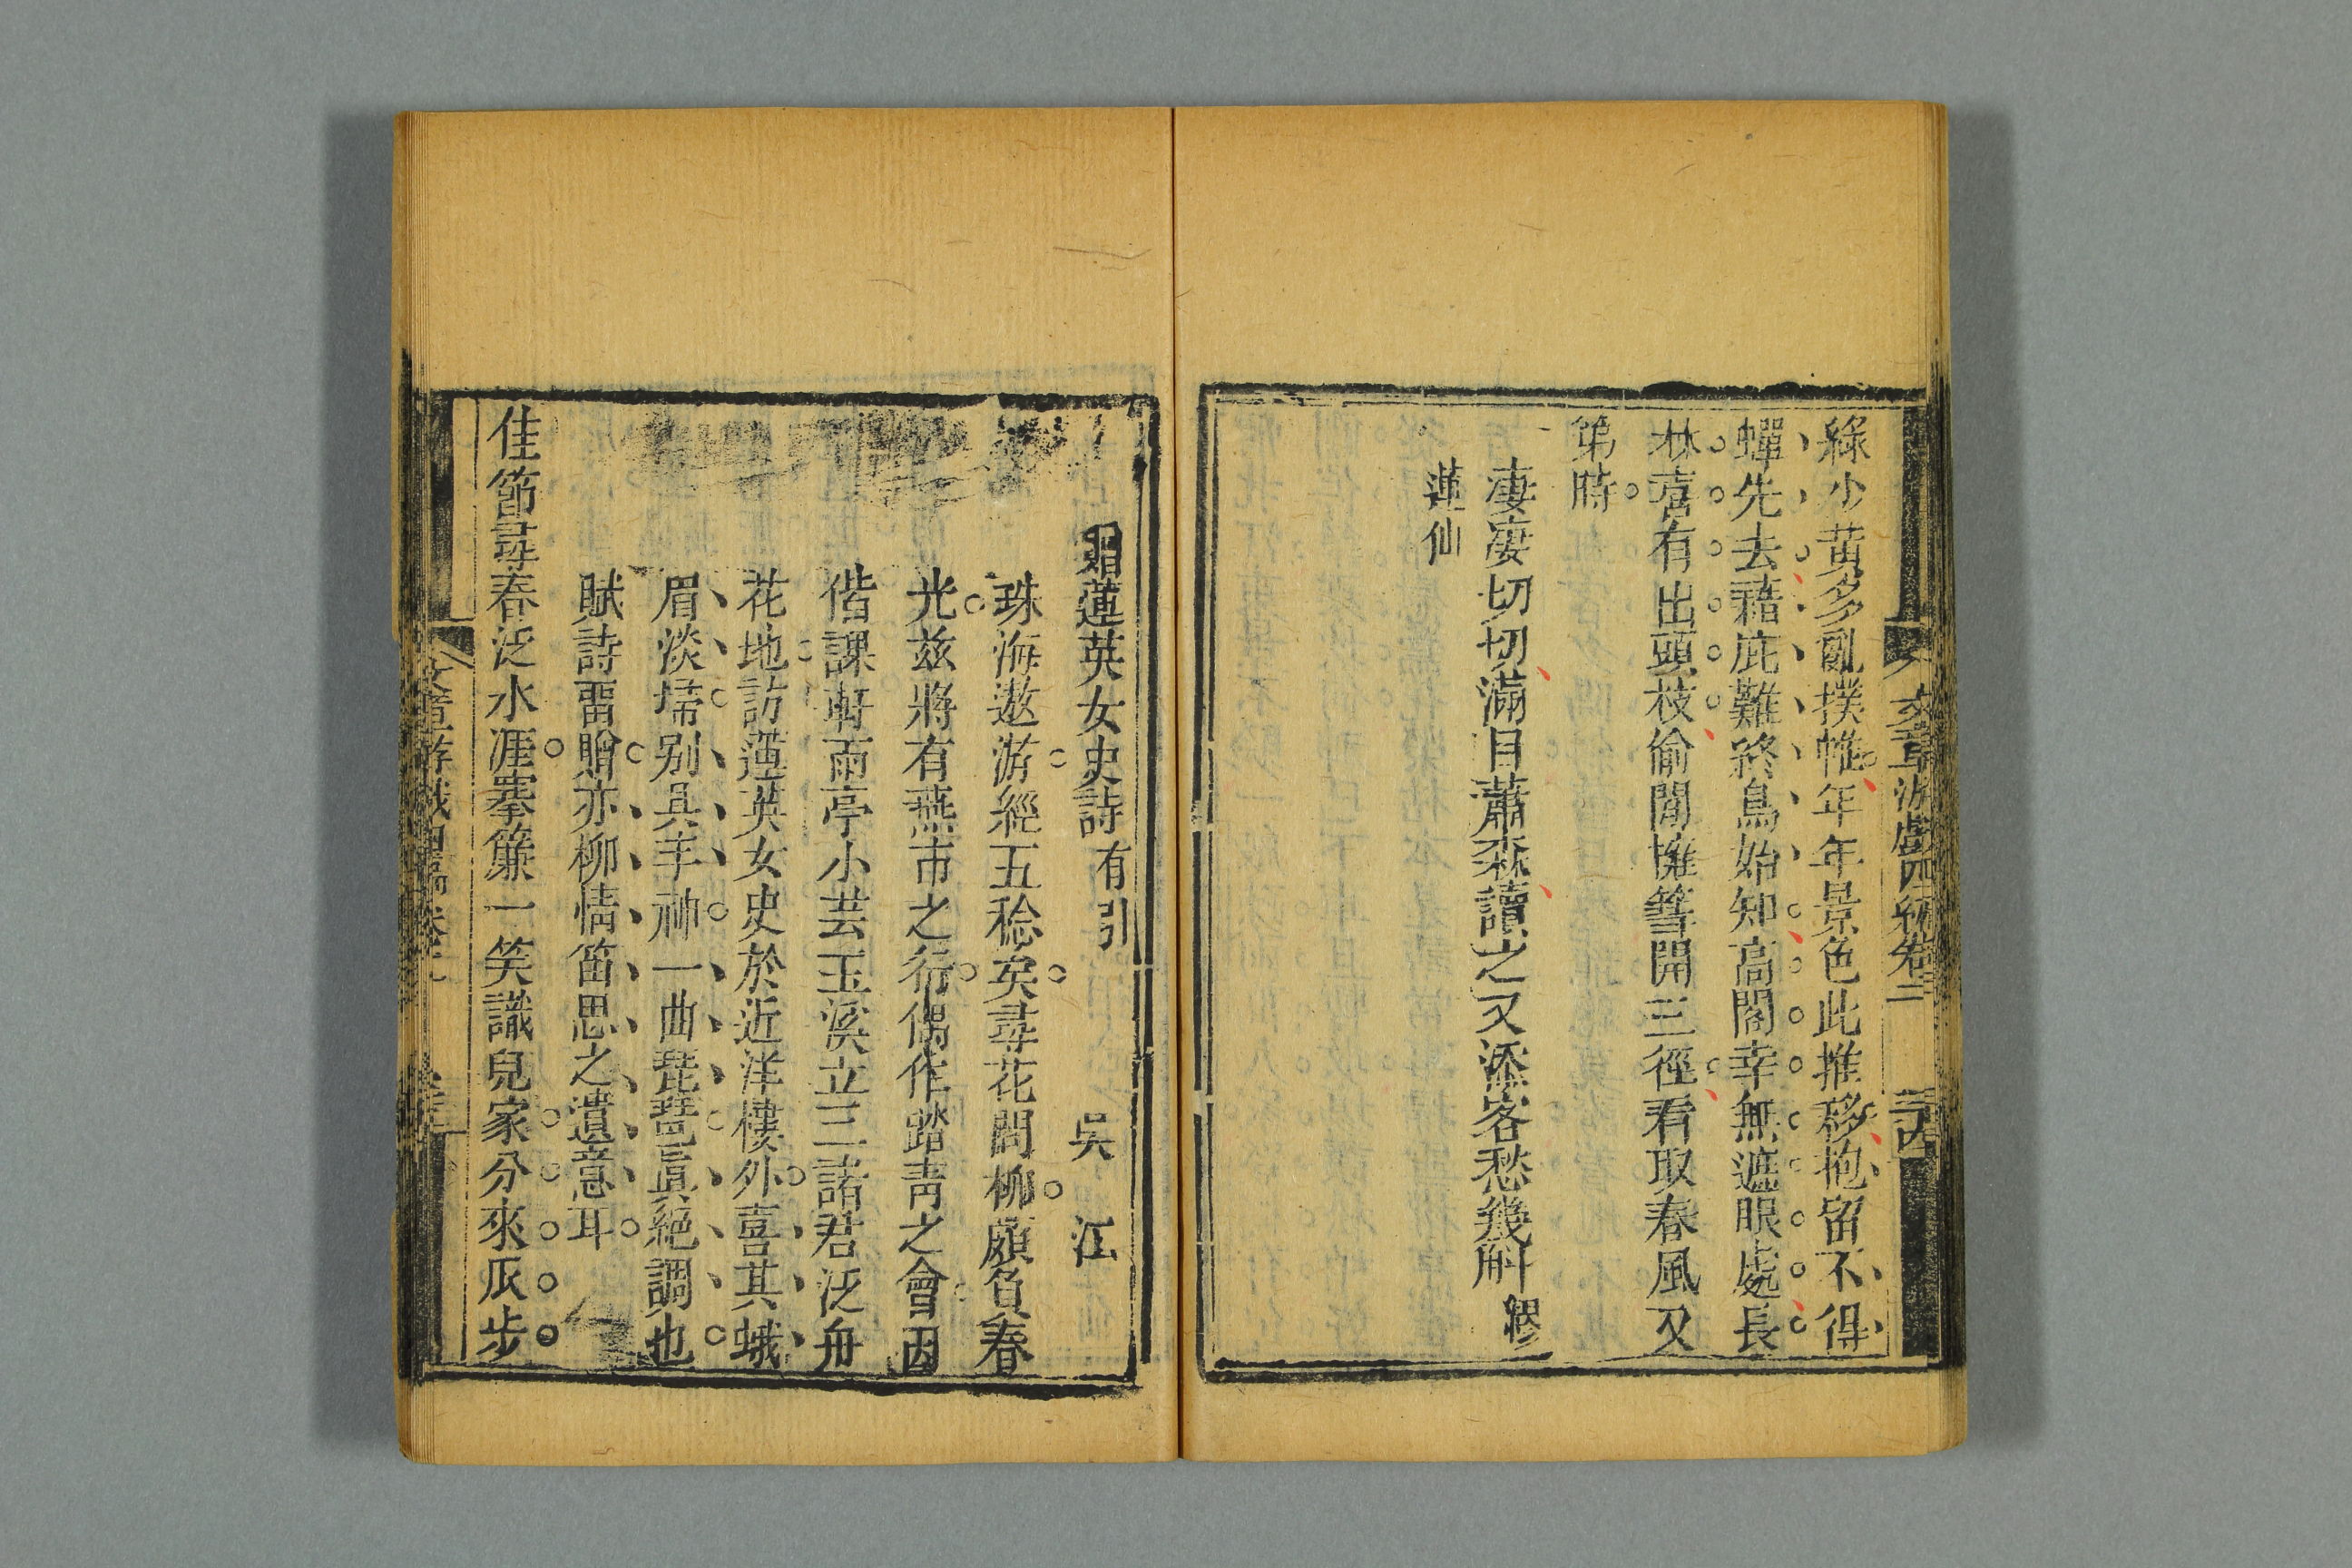 文章游戲四編卷三
綠少黃多亂撲帷年年景色此推移抱留不得
蟬先去藉庇難終鳥始知高閣幸無遮眼處長
林啻有出頭枝偷閒擁篲開三徑看取春風又
第時
淒淒切切滿目蕭森讀之又添客愁幾斛繆
蓮仙
贈蓮英女史詩有引 吳江
珠海遨游經五稔矣尋花問柳頗負春
光兹將有燕市之行偶作踏青之會因
偕課軒雨亭小芸玉溪立三諸君泛舟
花地訪蓮英女史於近洋樓外喜其蛾
眉淡埽别具丰神一曲琵琶眞絕調也
賦詩畱贈亦柳情笛思之遺意耳
佳節尋春泛水涯搴簾一笑識兒家分來瓜步